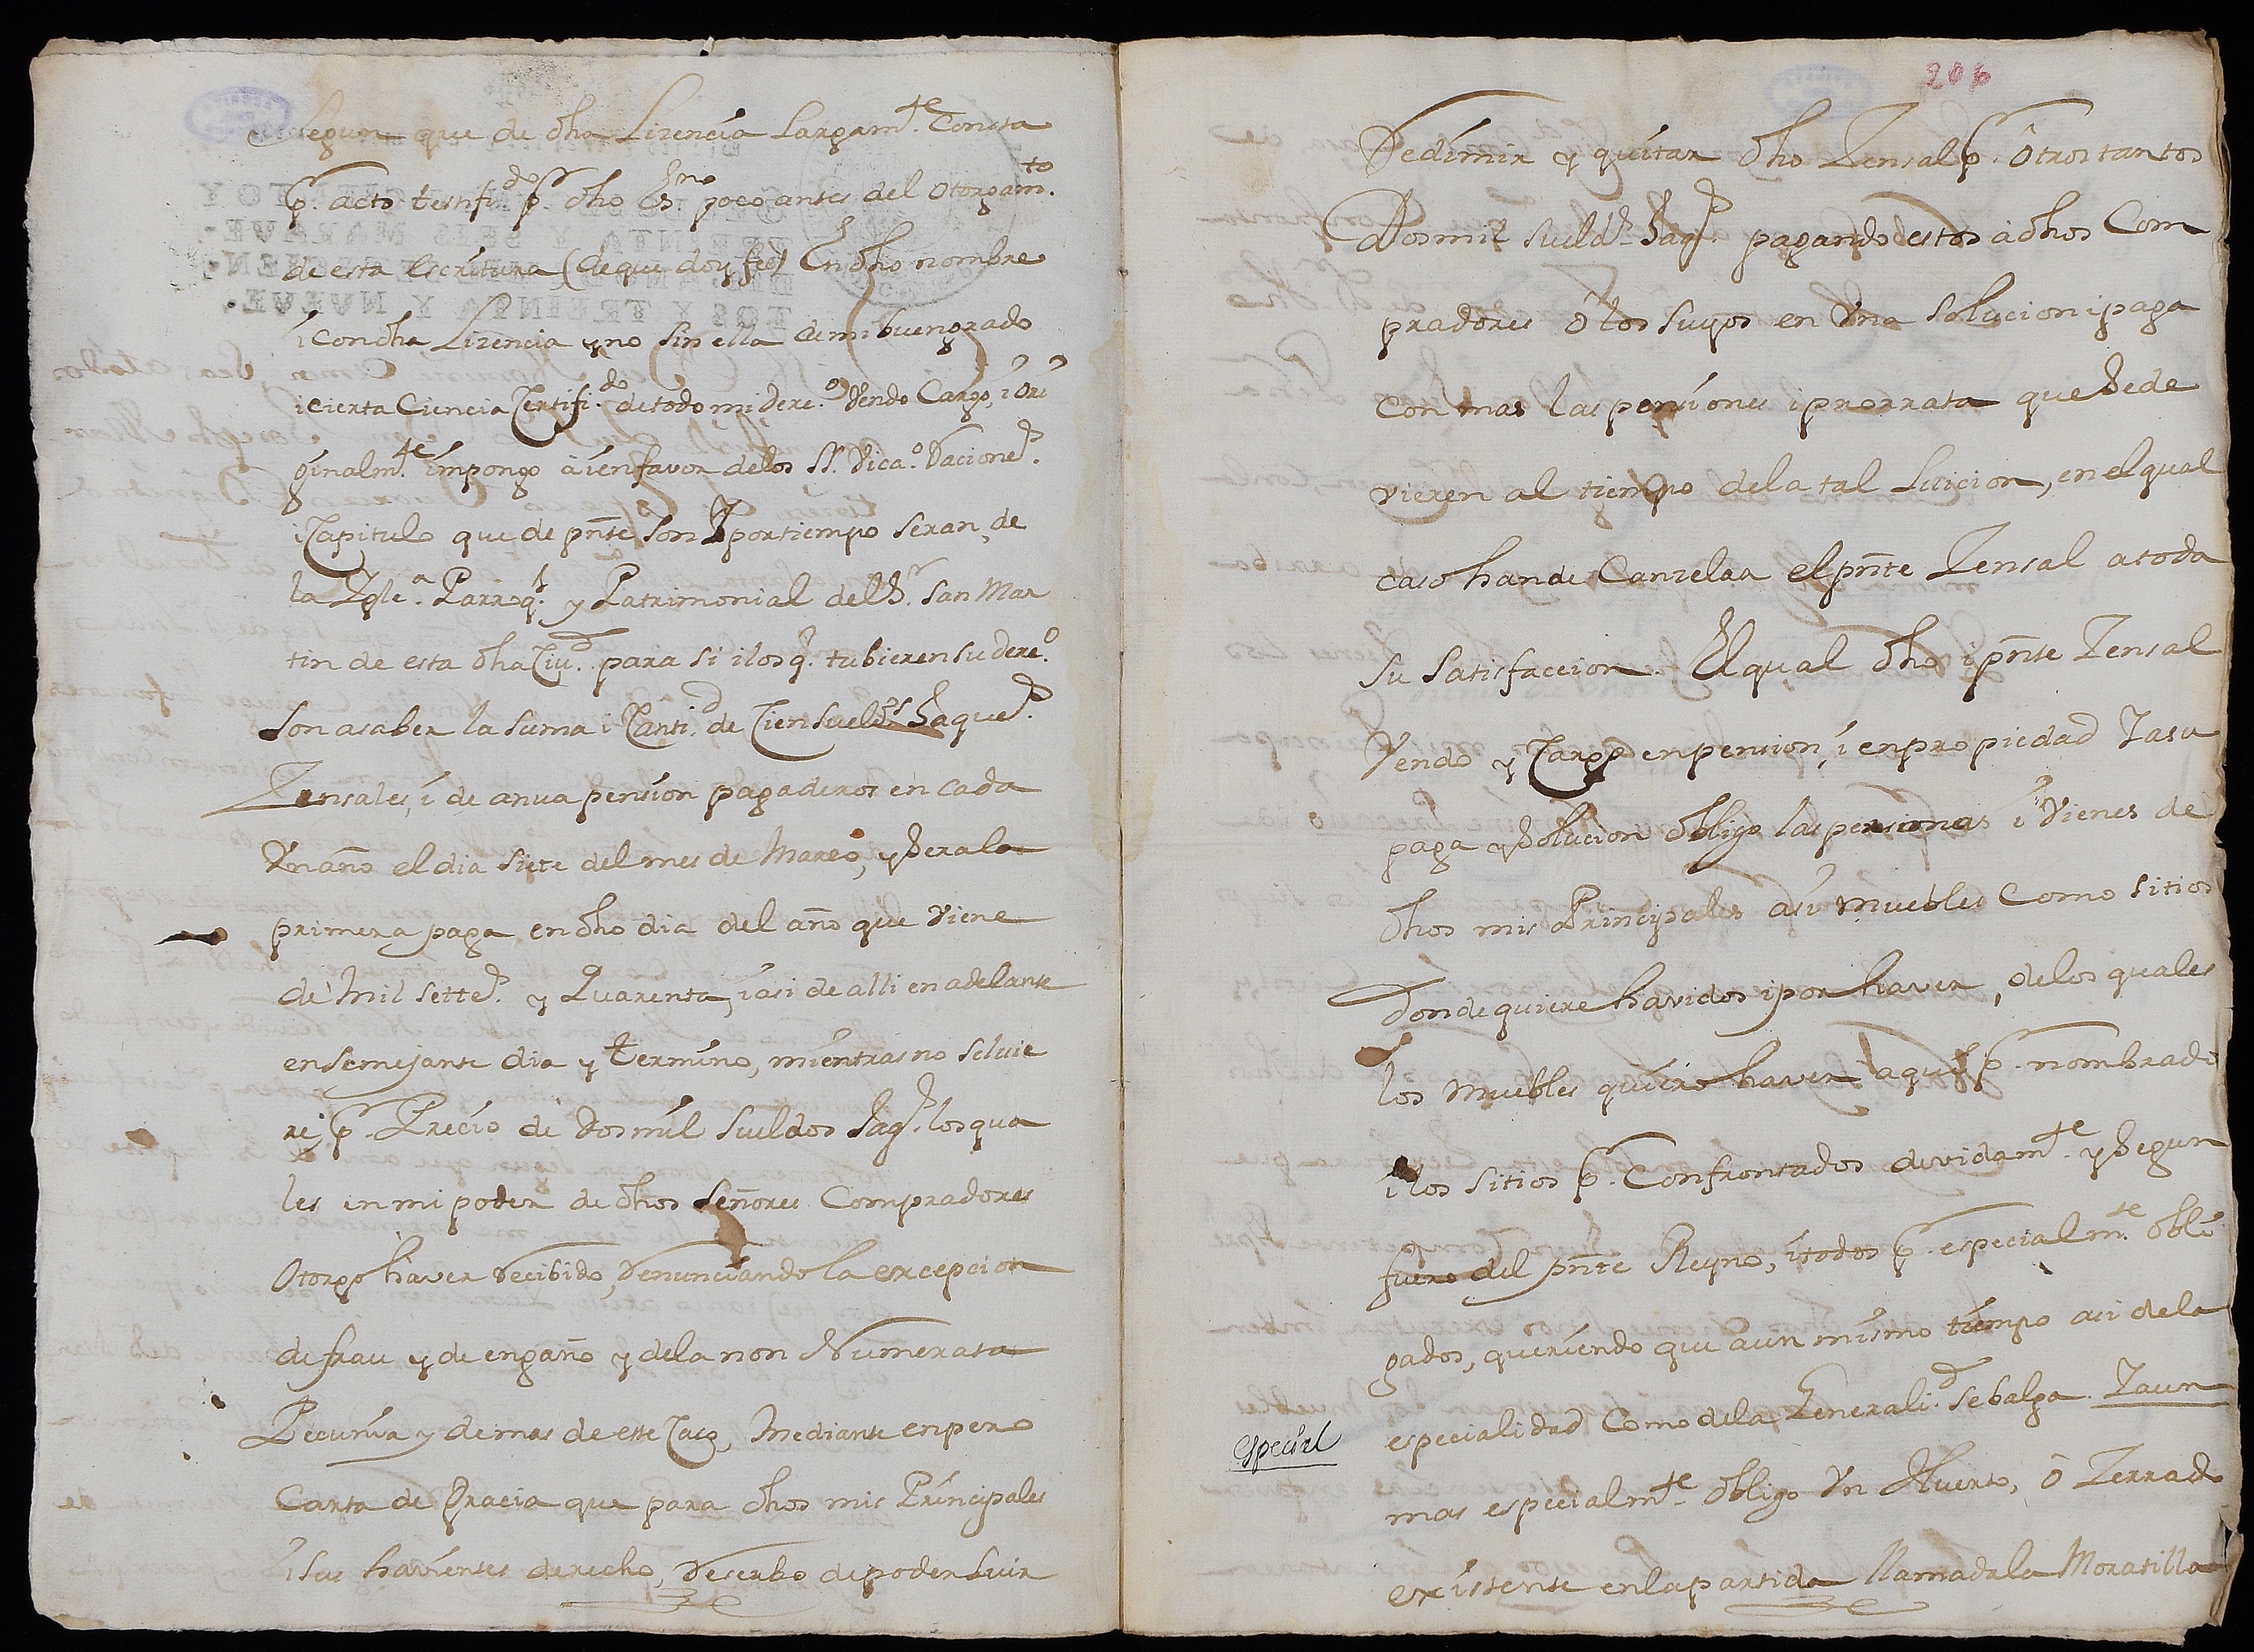 segun que de dha Lizencia Largam.te Consta
p.r acto testifi.do p.r dho Ess.no poco antes del otorgam.to
de esta Escritura (de que doy feè) En dho nombre
i con dha Lizencia y no sin ella de mi buen grado
i cierta Ciencia Zertifi.do de todo mi dere.o Vendo Cargo, i Ori
ginalm.te impongo à i en favor de los SS. Vica.o Racione.s
i Capitulo que de pñte son I por tiempo seran, de
la Igle.a Parroq.l y Patrimonial del S.r San Mar
tin de esta dha Ciu.d para si i los q.e tubieren su dere.o
son a saber la suma i Canti.d de Cien sueld.s Jaque.s
Zensales, i de anua pension pagaderos en cada
Un año el dia siete del mes de Marzo, y sera la
primera paga en dho dia del año que viene
de Mil Sette.s y Quarenta, i asi de alli en adelante
en semejante dia y termino, mientras no se luie
re, p.r Precio de Dos mil sueldos Jaq.s los qua
les en mi poder de dhos Señores Compradores
Otorgo haver Recibido, Renunciando la excepcion
de frau y de engaño y de la non Numerata
Pecunia y demas de este Caso, Mediante enpero
Carta de Gracia que para dhos mis Principales
i sus havientes derecho, Reserbo de poder Luir
206
Redimir y quitar dho Zensal p.r Otros tantos
Dos mil sueld.s Jaq.s pagando estos à dhos Com
pradores ô los suyos en Una solucion i paga
con mas las pensiones i prorrata que se de
vieren al tiempo de la tal Luicion, en el qual
caso han de Canzelar el pñte Zensal a toda
su satisfaccion. El qual dho i pñte Zensal
Vendo y Cargo en pension, i en propiedad I a su
paga y solucion obligo las personas i Vienes de
dhos mis Principales asi muebles como sitios
donde quiere havidos i por haver, de los quales
los muebles quiero haver aqui p.r nombrados
i los sitios p.r Confrontados devidam.te y segun
fuero del pñte Reyno, i todos p.r especialm.te obli
gados, queriendo que a un mismo tiempo asi de la
especialidad Como de la Generali.d se balga. I aun
especial
mas especialm.te obligo Un Huerto, ô Zerrado
existente en la partida llamada la Moratilla